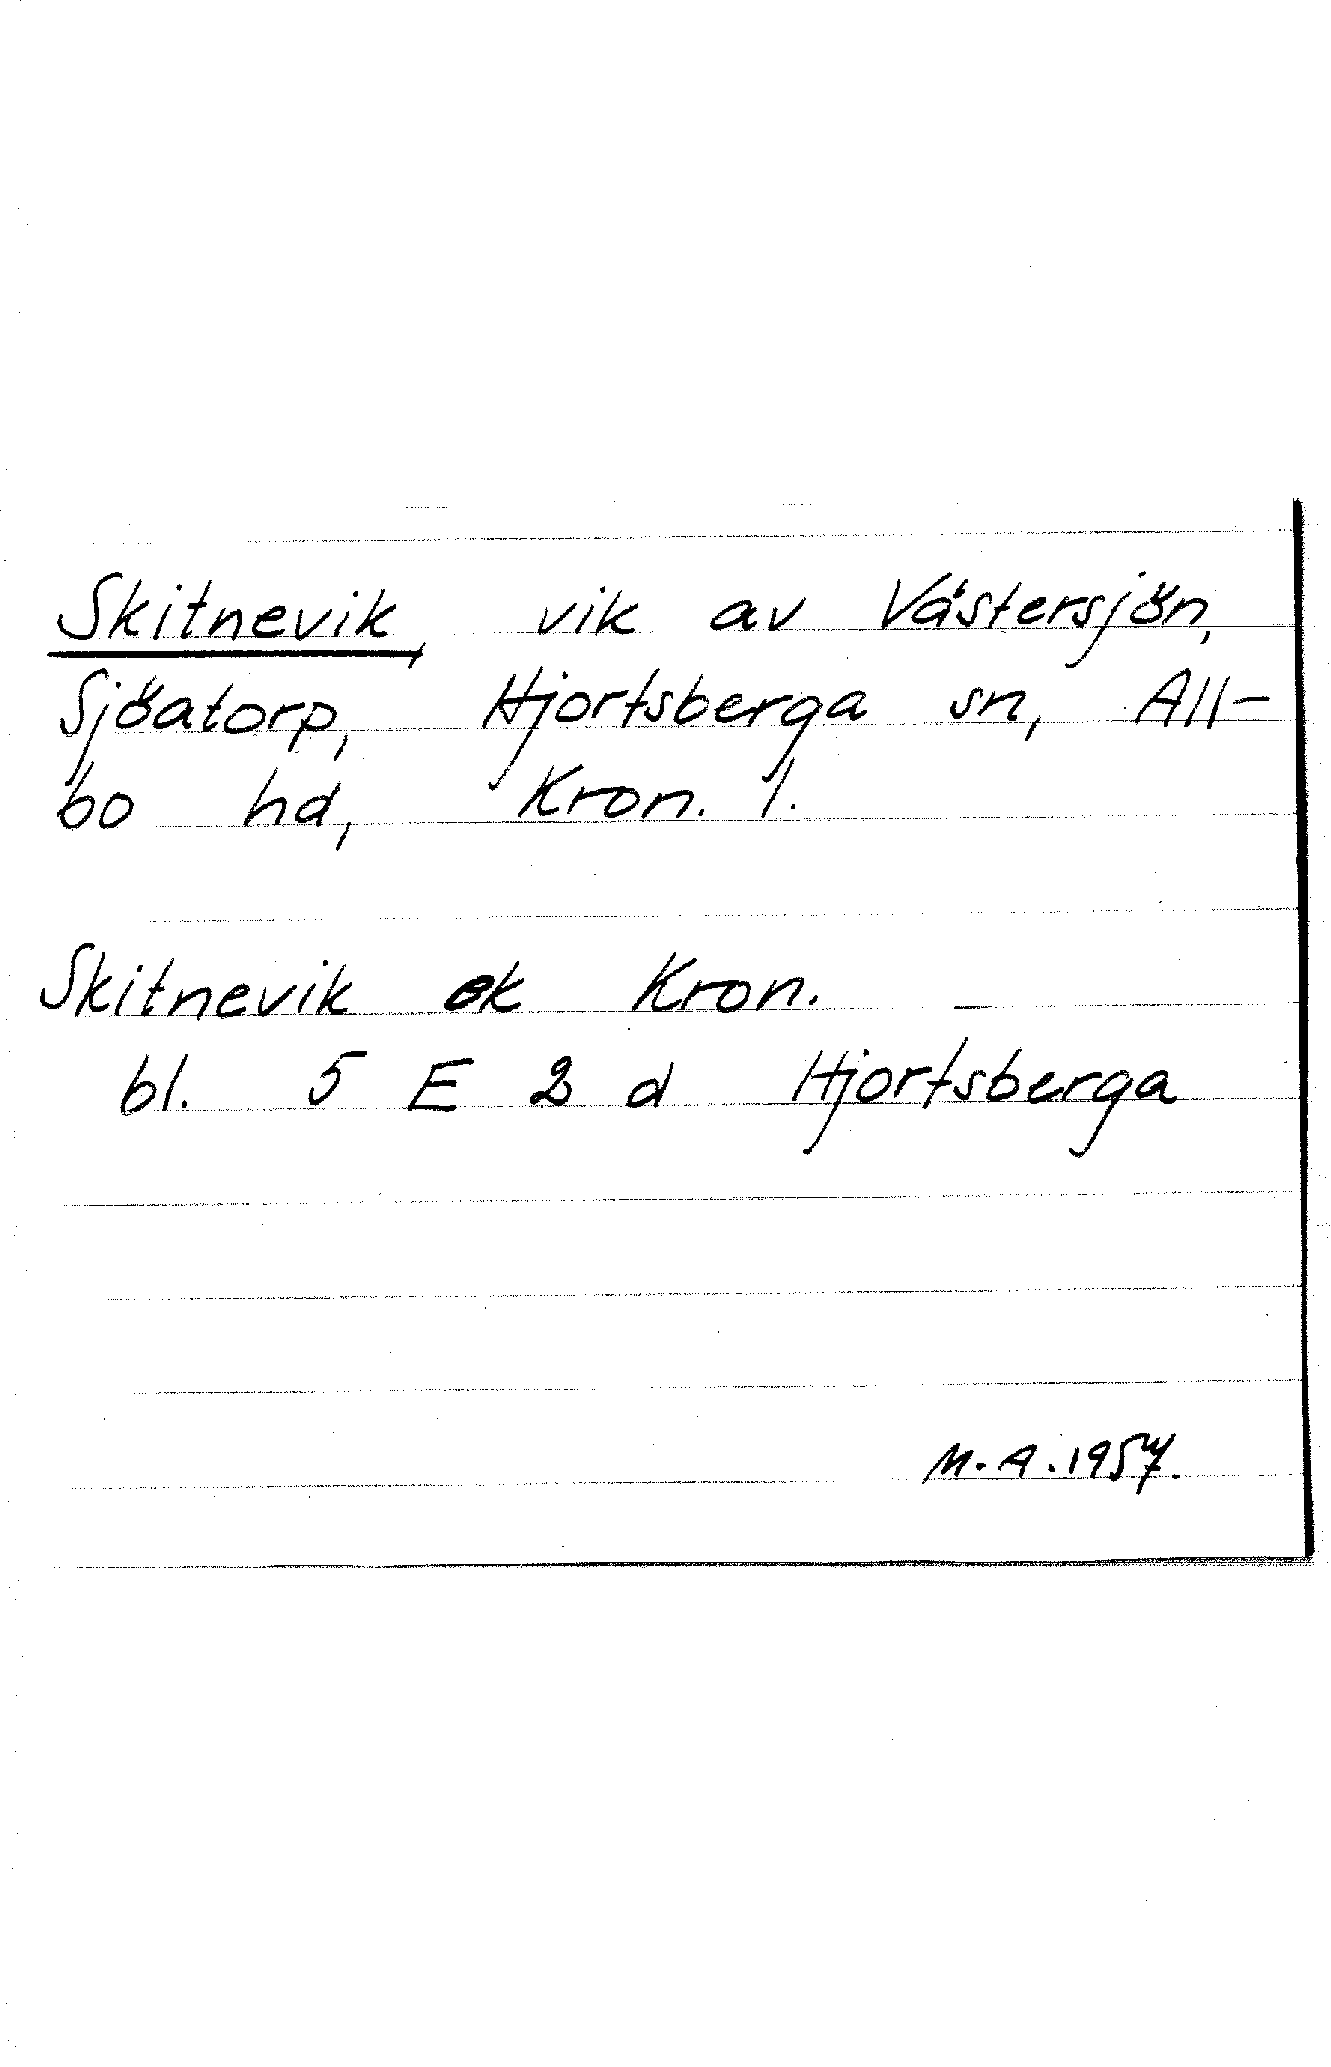 Skitnevik, vik av Västersjön,
Sjöatorp, Hjortsberga sn, All-
bo hd, Kron. l.
Skitnevik ek Kron.
bl. 5 E 2 d Hjortsberga
M.A. 1957.